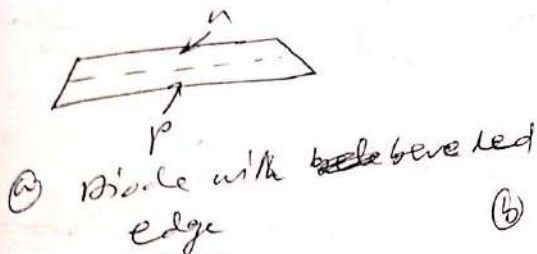 n
p
(a) Diode with beveled
edge
(b)